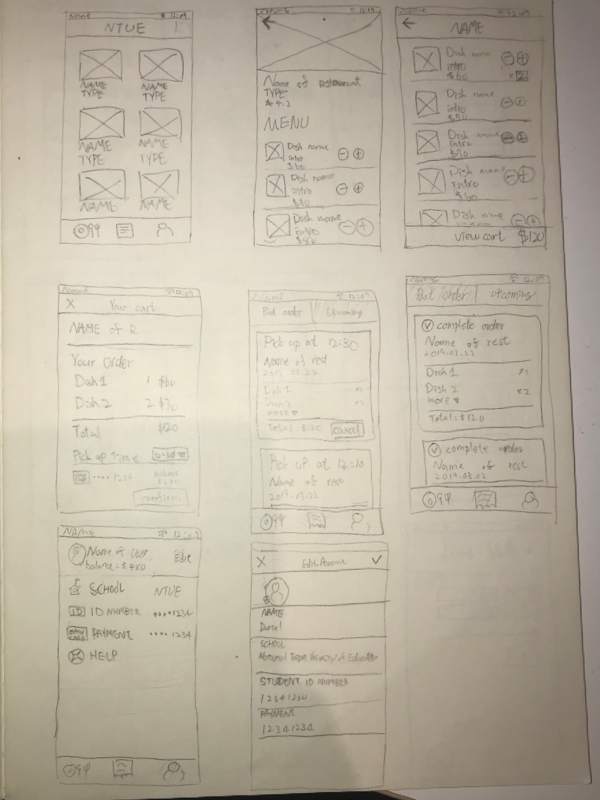 Name 12:09
NTUE
NAME NAME
TYPE TYPE
NAME NAME
TYPE TYPE
NAME NAME
12:09
Name of restaurant
TYPE
4.2
MENU
Dish name
intro
$60
Dish name
intro
Dish name
Name
NAME
Dish name
intro
$60
Dish name
intro
Dish name
intro
Dish name
Intro
$60
Dish name
View cart $120
X Your cart
NAME of R
Your Order
Dish 1 1 $60
Dish 2 2 $30
Total $120
Pick up Time
•••• 1234
Past order Upcoming
Pick up at 12:30
Name of rest
2019.03.22
Dish 1 x1
Dish 2
more
Total: $120 Cancel
Pick up at 12:10
Name of rest
2019.03.22
Past Order Upcoming
complete order
Name of rest
2019.03.22
Dish 1 x1
Dish 2 x2
more
Total: $120
complete order
Name of rest
2019.03.02
NAME
Name of User Edit
balance: $480
SCHOOL NTUE
ID NUMBER •••• 1234
PAYMENT •••• 1234
HELP
X Edit Account
NAME
Daniel
SCHOOL
National Taipei University of Education
STUDENT ID NUMBER
12341234
PAYMENT
12341234